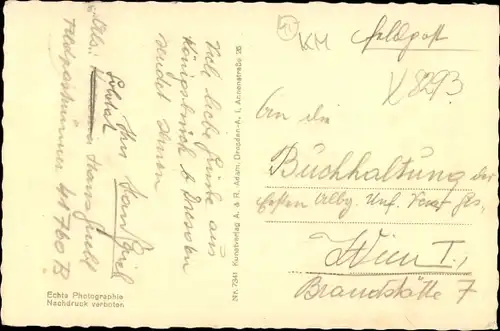 Viele liebe Grüße aus
Königsbrück b Dresden
sendet Ihnen
Ihr
Abs: Soldat
Feldpostnummer 41760 B
Echte Photographie
Nachdruck verboten
Nr. 7341 Kunstverlag A. & R. Adam, Dresden-A. 1, Annenstraße 26
KM
Feldpost
X 8293
An die
Buchhaltung der
Ersten Allg. Unf. Vers. Ges.
Wien I.,
Brandstätte 7